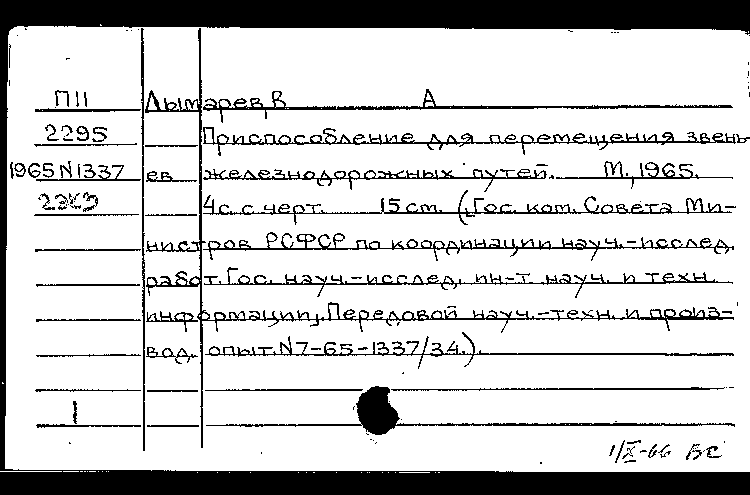 П11 Лымарев, В А
2295 Приспособление для перемещения звень-
1965 N1337 ев железнодорожных путей. М., 1965.
2экз 4с. с черт. 15 см. (Гос. ком. Совета Ми-
нистров РСФСР по координации науч.-исслед.
работ. Гос. науч.-исслед. ин-т науч. и техн.
информации. Передовой науч.-техн. и произ-
вод. опыт. N7-65-1337/34.).
1
1/X-66 ВС